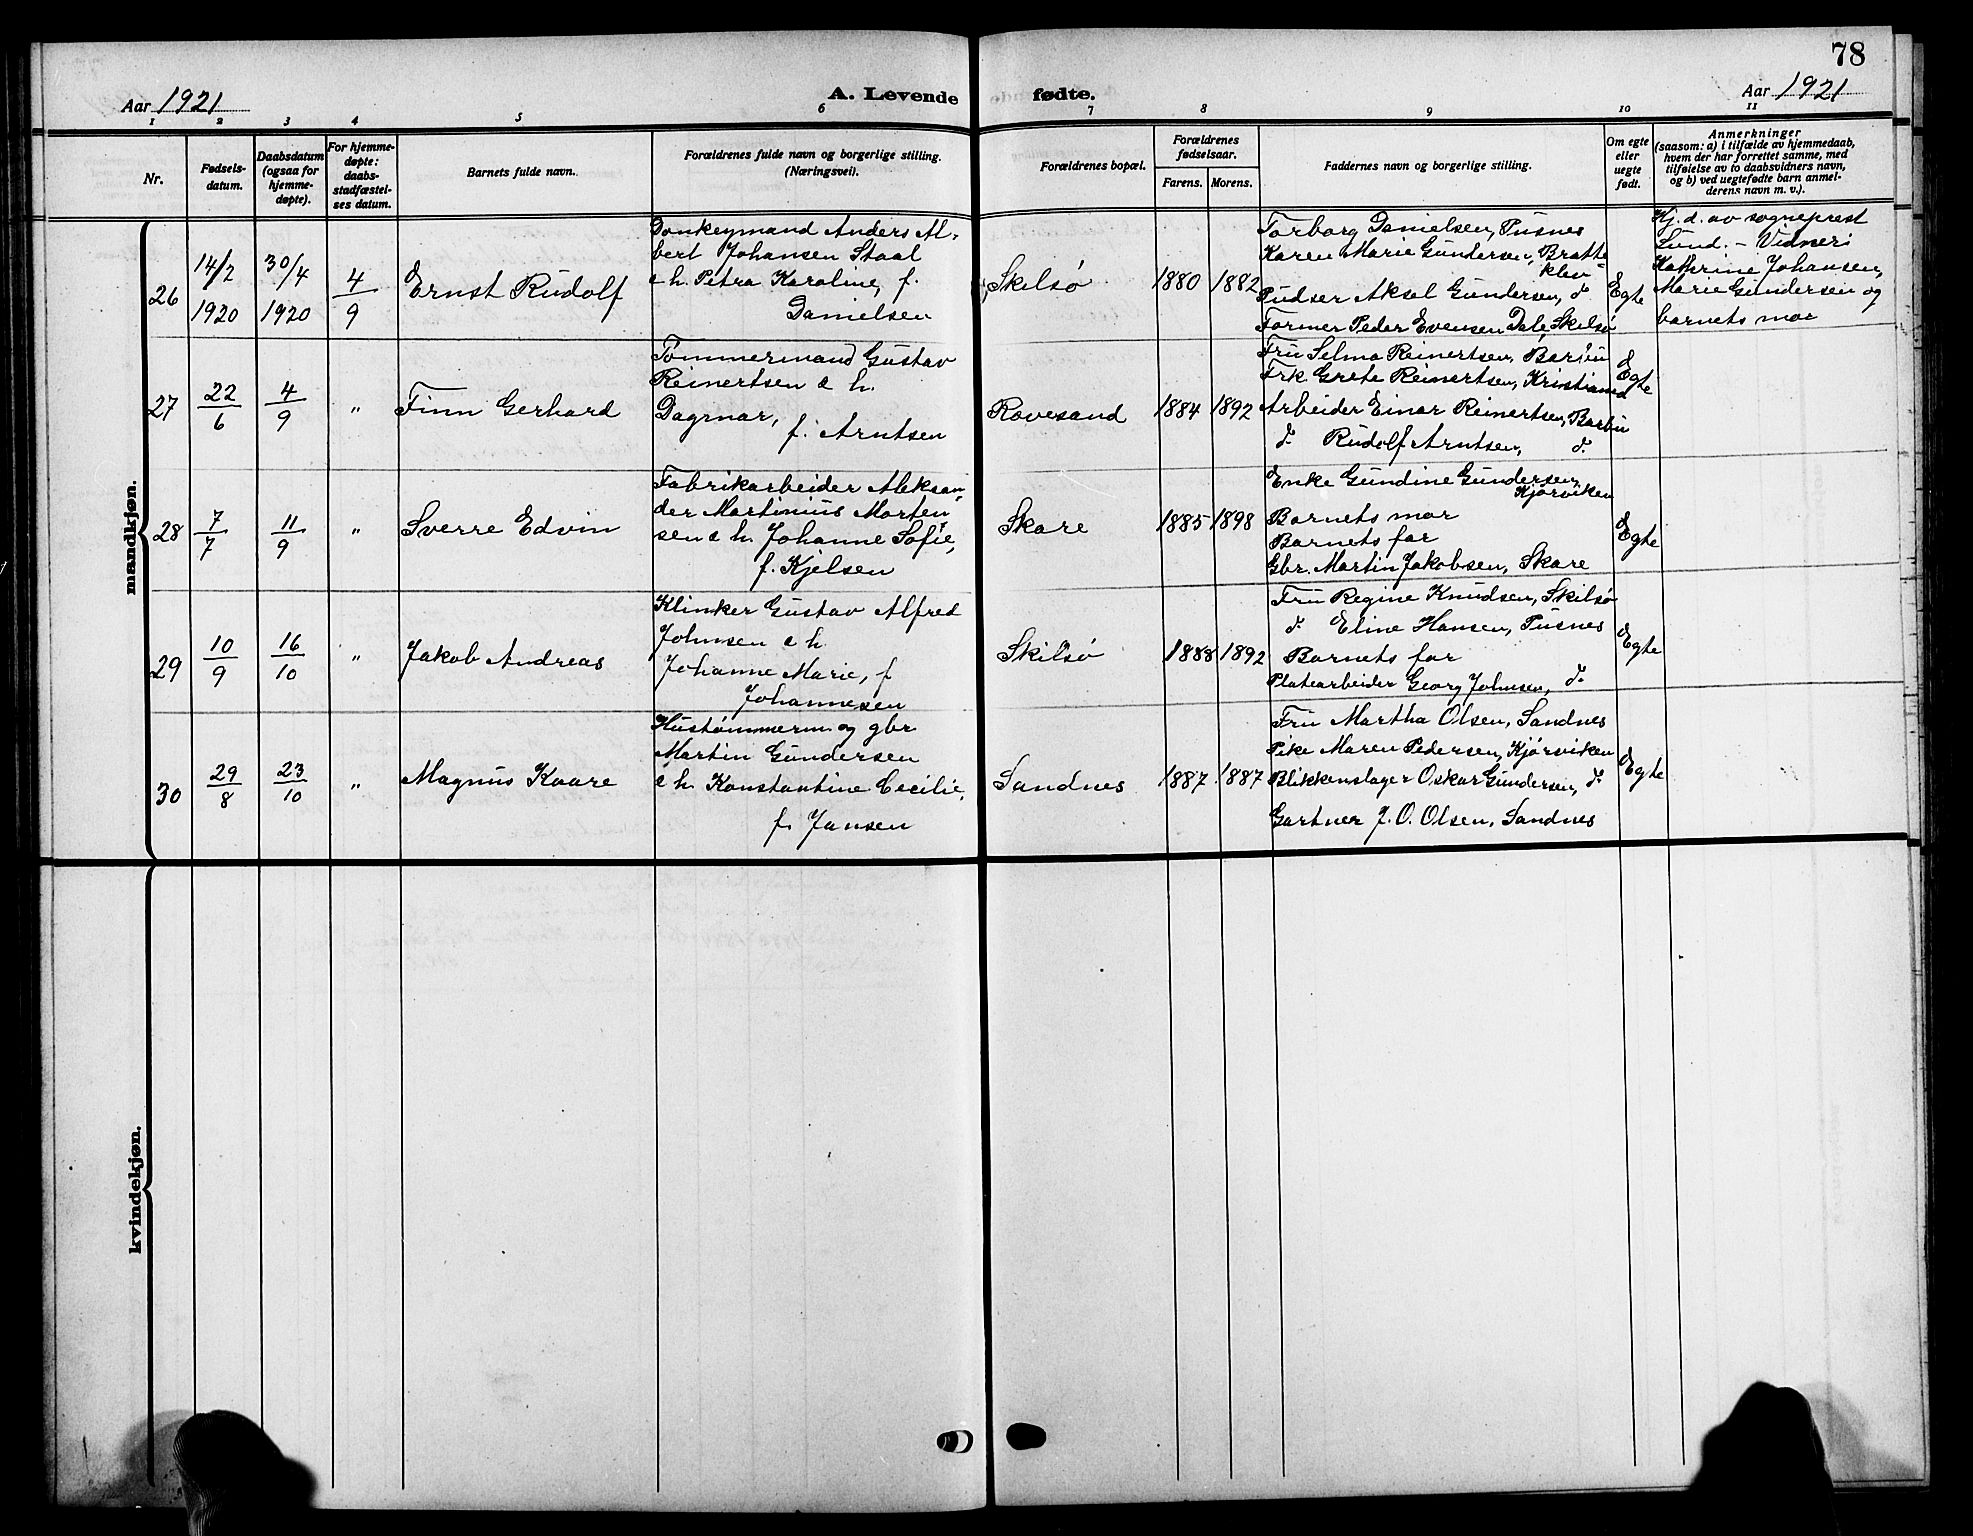 78
Aar 1921
A. Levende fødte.
Aar 1921
1 2 3 4 5 6 7 8 9 10 11
Nr.
Fødsels-
datum.
Daabsdatum
(ogsaa for
hjemme-
døpte).
For hjemme-
døpte:
daabs-
stadfæstel-
ses datum.
Barnets fulde navn.
Forældrenes fulde navn og borgerlige stilling.
(Næringsvei).
Forældrenes bopæl.
Forældrenes
fødselsaar.
Farens. Morens.
Faddernes navn og borgerlige stilling.
Om egte
eller
uegte
født.
Anmerkninger
(saasom: a) i tilfælde av hjemmedaab,
hvem der har forrettet samme, med
tilføielse av to daabsvidners navn,
og b) ved uegtefødte barn anmel-
derens navn m. v.).
mandkjøn.
26
14/2
1920
30/4
1920
4/9
Ernst Rudolf
Donkeymand Anders Al-
bert Johansen Staal
e h. Petra Karoline, f.
Danielsen
Skilsø
1880 1882
Torborg Danielsen, Pusnes
Karen Marie Gundersen, Bratte-
klev
Pudser Aksel Gundersen, d.
Former Peder Evensen Dale, Skilsø
Egte
Hj. d. av sogneprest
Lund. - Vidner:
Kathrine Johansen,
Marie Gundersen og
barnets mor
27
22/6
4/9
"
Finn Gerhard
Tømmermand Gustav
Reinertsen e h.
Dagmar,
f. Arntsen
Rovesand
1884 1892
Fru Selma Reinertsen, Barbu
Frk. Grete Reinertsen, Kristiansd
Arbeider Einar Reinertsen, Barbu
d. Rudolf Arntsen, d.
Egte
28
7/7
11/9
"
Sverre Edvin
Fabrikarbeider Aleksan-
der Martinius Morten-
sen e h. Johanne Sofie,
f. Kjelsen
Skare
1885 1898
Enke Gundine Gundersen,
Kjørviken
Barnets mor
Barnets far
Gbr. Martin Jakobsen, Skare
Egte
29
10/9
16/10
"
Jakob Andreas
Klinker Gustav Alfred
Johnsen e h.
Johanne Marie, f
Johannesen
Skilsø
1888 1892
Fru Regine Knudsen, Skilsø
d. Eline Hansen, Pusnes
Barnets far
Platearbeider Georg Johnsen, d.
Egte
30
29/8
23/10
"
Magnus Kaare
Hustømmerm og gbr
Martin Gundersen
e h Konstantine Cecilie,
f. Jansen
Sandnes
1887 1887
Fru Martha Olsen, Sandnes
Pike Maren Pedersen, Kjørviken
Blikkenslager Oskar Gundersen, d.
Gartner J. O. Olsen, Sandnes
Egte
kvindekjøn.